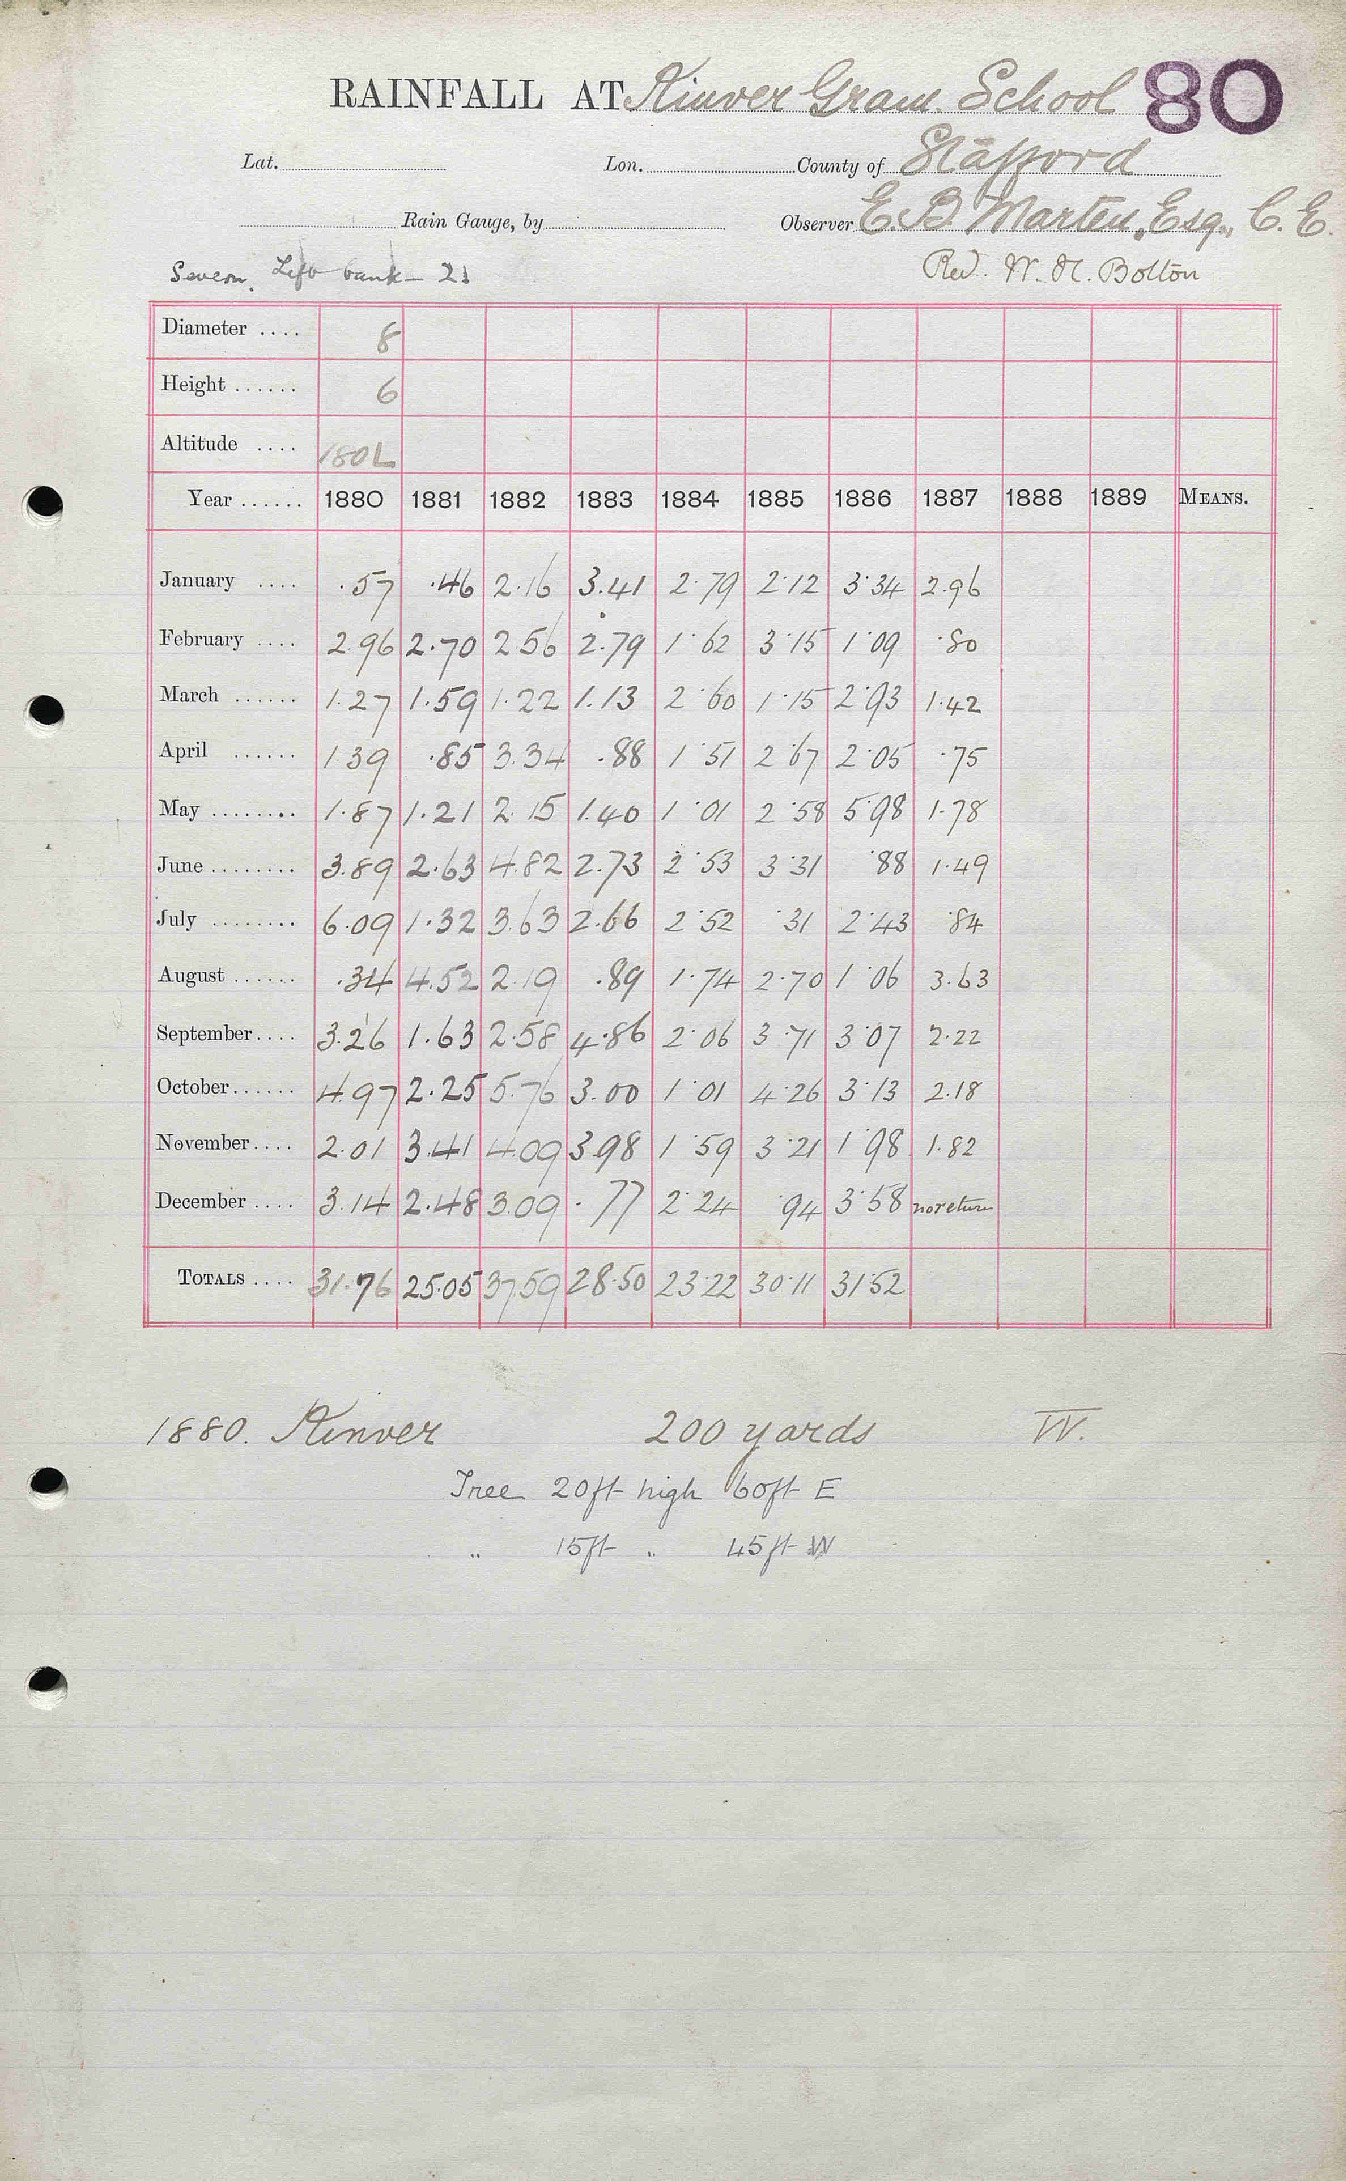 RAINFALL AT Kinver Gram. School 80
Lat. Lon. County of Stafford
Rain Gauge, by Observer E. B. Marten, Esq., C. E.
Severn. Left bank - 21 Rev. W. H. Bolton
Diameter .... 8
Height ...... 6
Altitude .... 180L
Year ...... 1880 1881 1882 1883 1884 1885 1886 1887 1888 1889 MEANS.
January .... .57 .46 2.16 3.41 2.79 2.12 3.34 2.96
February .... 2.96 2.70 2.56 2.79 1.62 3.15 1.09 .80
March ...... 1.27 1.59 1.22 1.13 2.60 1.15 2.93 1.42
April ...... 1 39 .85 3.34 .88 1.51 2.67 2.05 .75
May ........ 1.87 1.21 2.15 1.40 1.01 2.58 5.98 1.78
June ........ 3.89 2.63 4.82 2.73 2.53 3.31 .88 1.49
July ........ 6.09 1.32 3.63 2.66 2.52 .31 2.43 .84
August ...... .34 4.52 2.19 .89 1.74 2.70 1.06 3.63
September.... 3.26 1.63 2.58 4.86 2.06 3.71 3.07 2.22
October...... 4.97 2.25 5.76 3.00 1.01 4.26 3.13 2.18
November.... 2.01 3.41 4.09 3.98 1.59 3.21 1.98 1.82
December .... 3.14 2.48 3.09 .77 2.24 .94 3.58 no return
TOTALS .... 31.76 25.05 37.59 28.50 23.22 30.11 31.52
1880. Kinver 200 yards W.
Tree 20ft high 60ft E
" 15ft " 45ft W